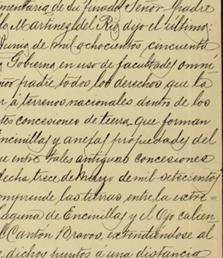 mentaria de su finado Señor Padre
Martinez del Rio dijo el último:
Junio de mil ochocientos cincuenta
Gobierno en uso de facultades omni
ñor padre todos los derechos que la
a terrenos nacionales dentro de los
tes concesiones de tierra, que forman
Encinillas y anejas propiedades del
que entre tales antiguas concesiones
fecha trece de Mayo de mil setecientos
comprende las tierras entre la
Laguna de Encinillas y el Ojo Calien
Canton Bravos, extendiéndose al
dichos puntos á una distancia